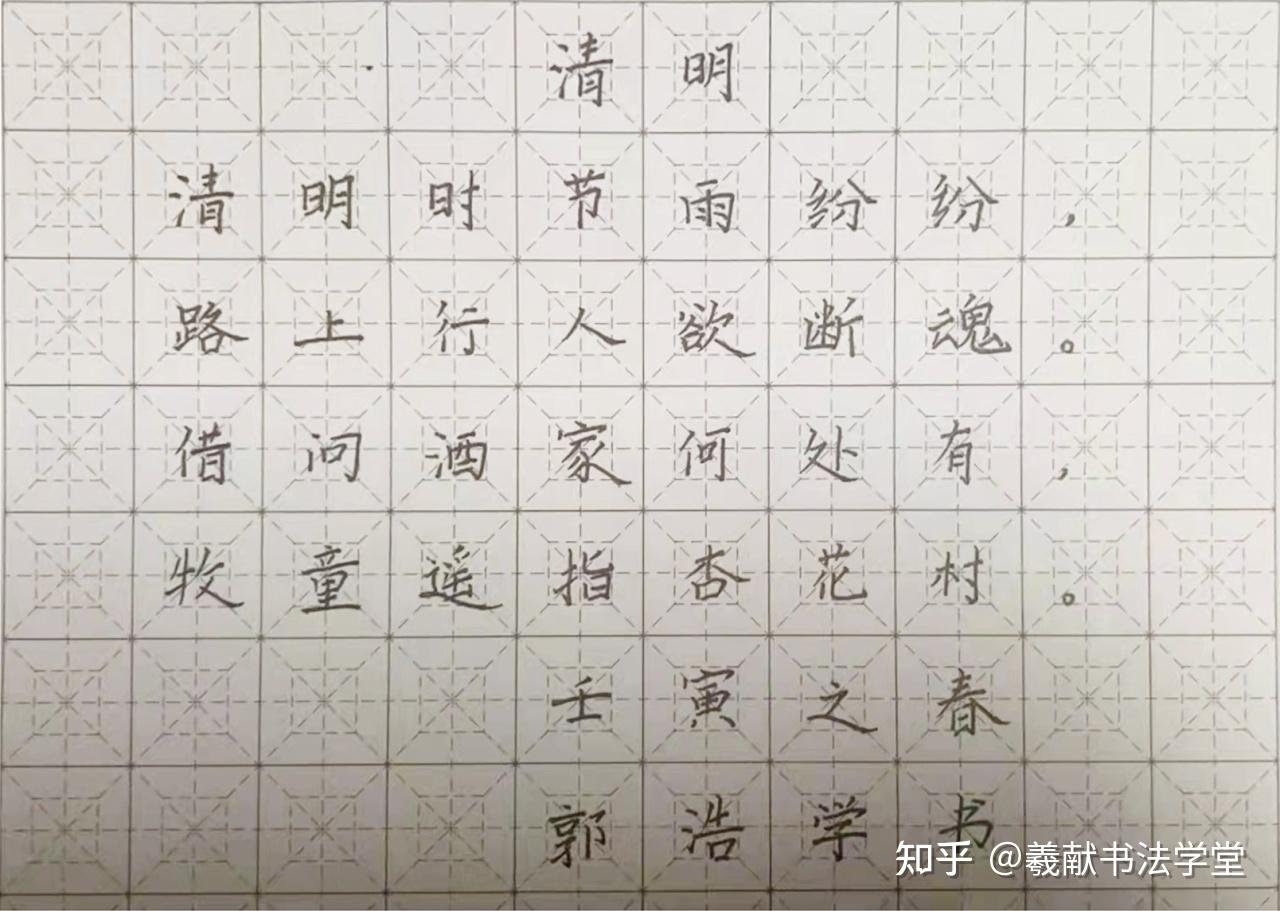 清明
清明时节雨纷纷，
路上行人欲断魂。
借问酒家何处有，
牧童遥指杏花村。
壬寅之春
郭浩学书
知乎 @羲献书法学堂